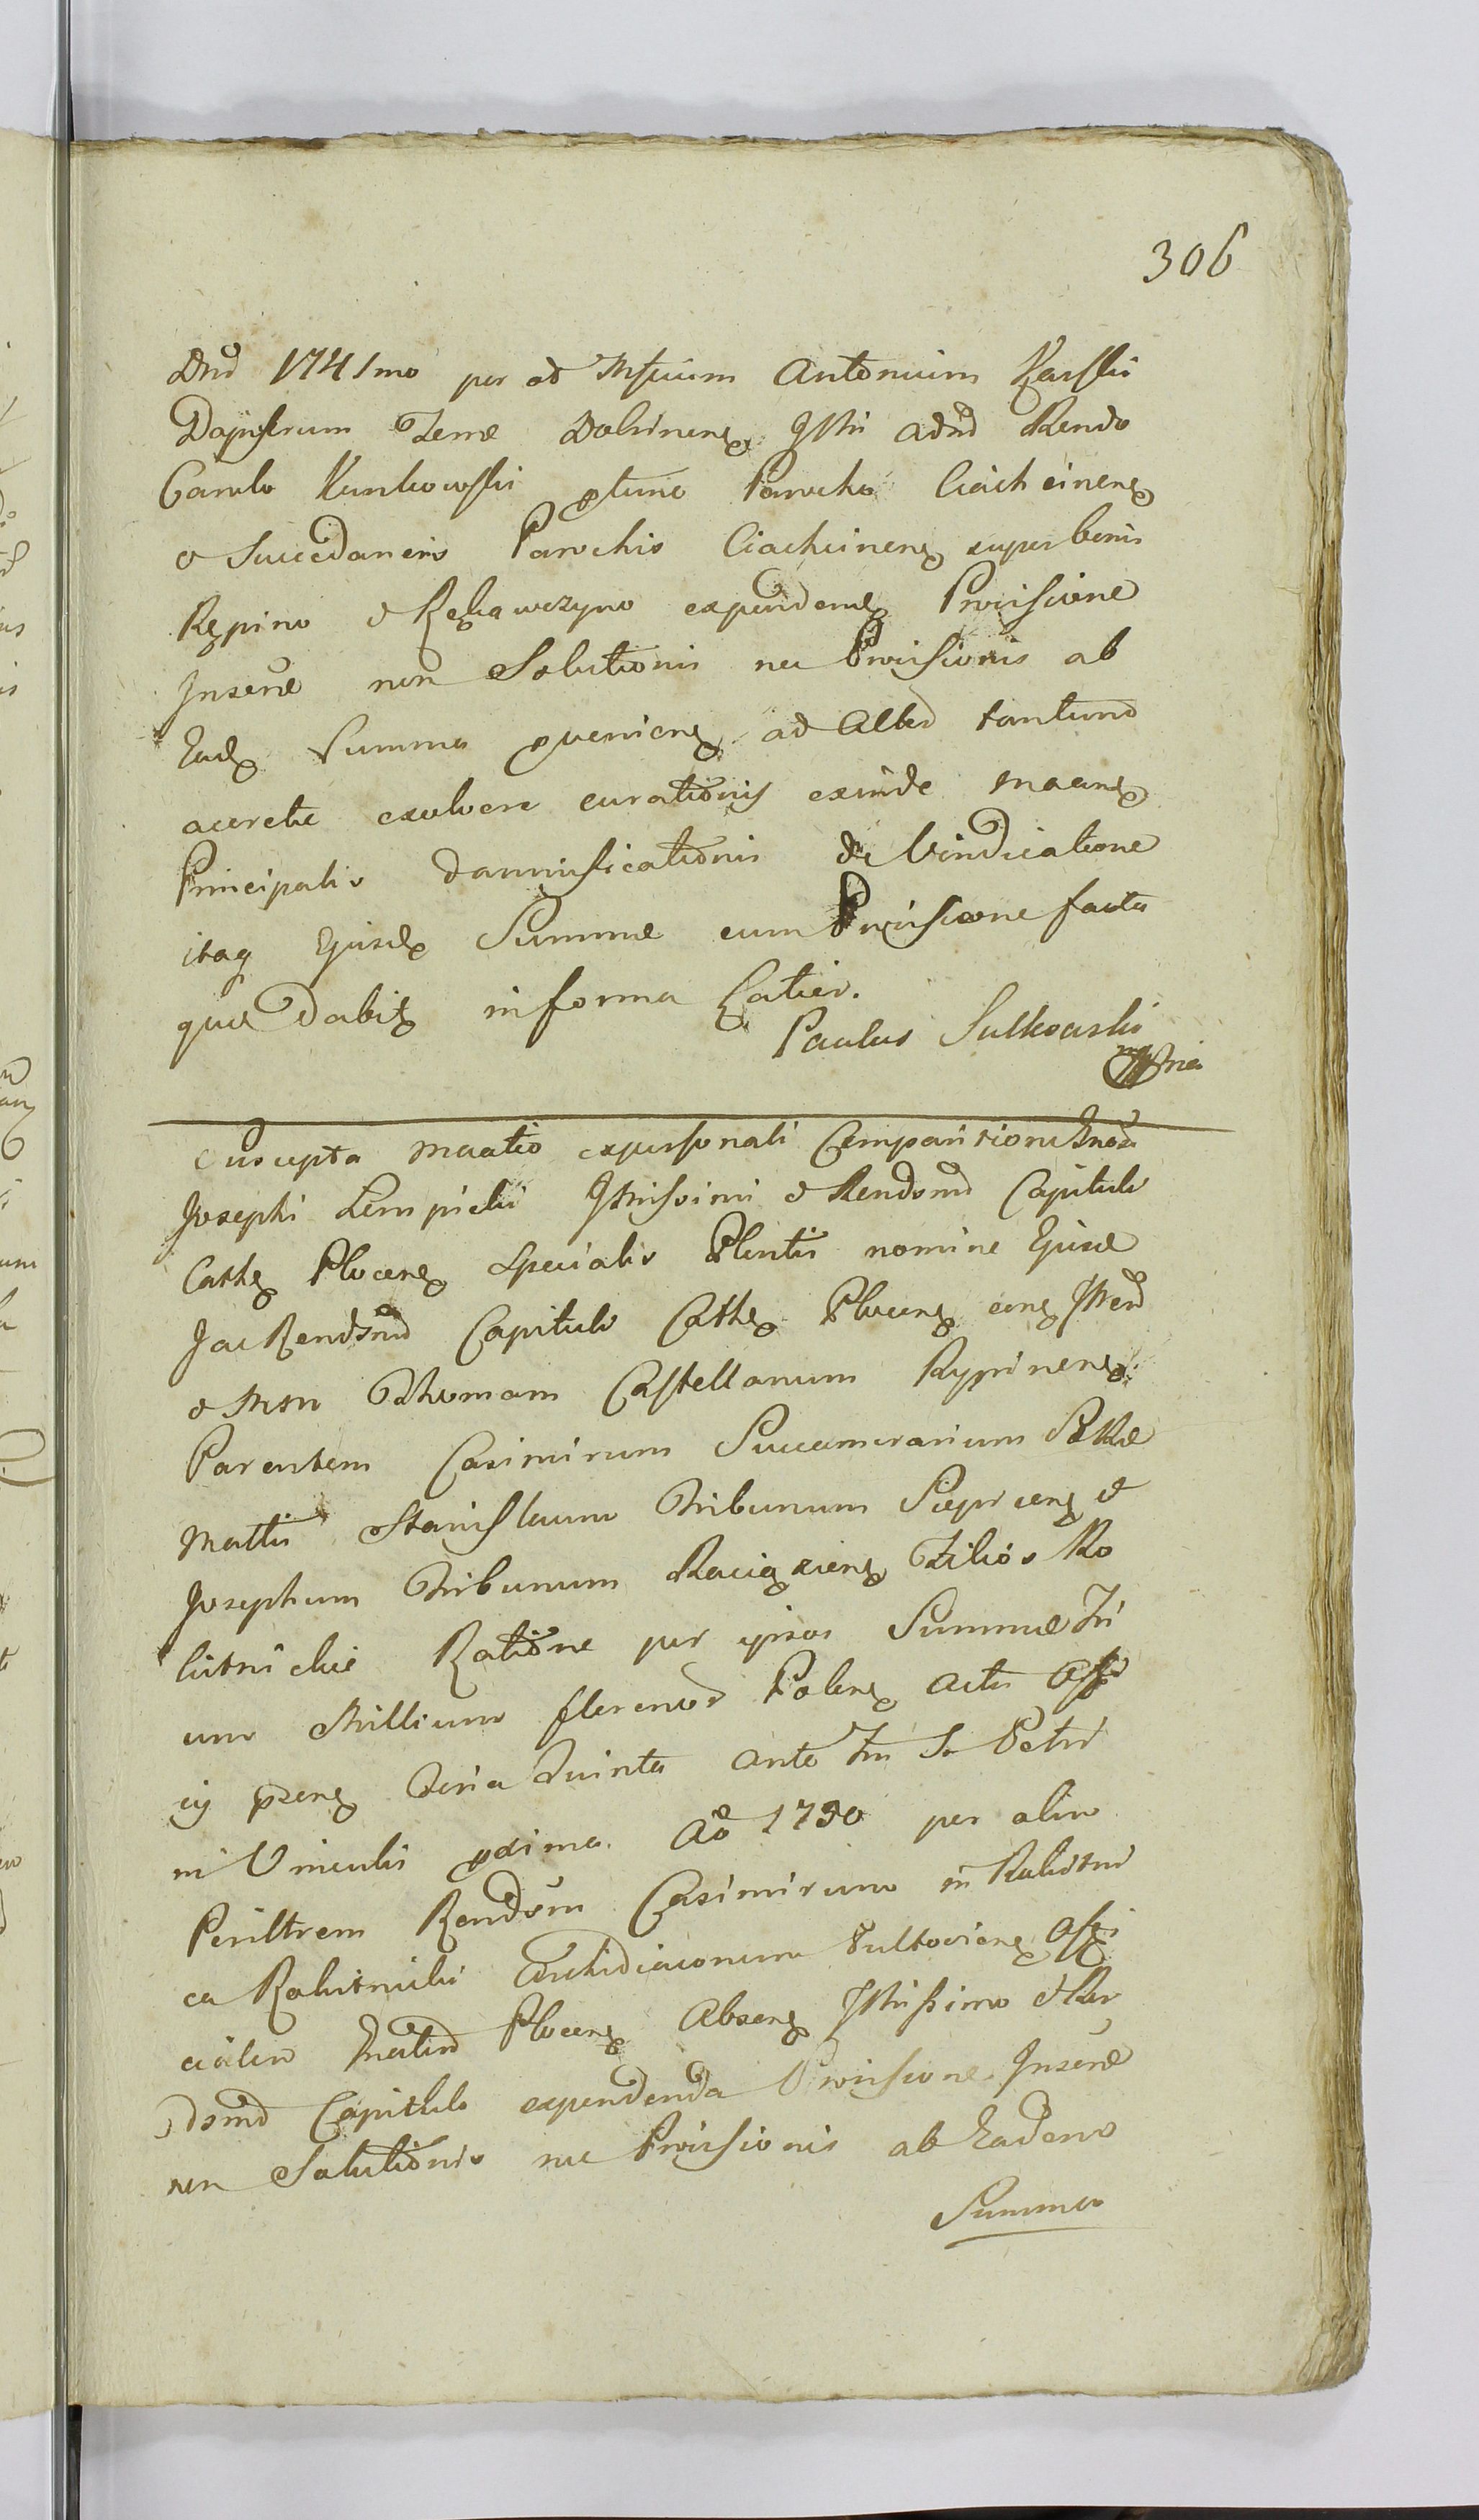 306
Dnd 1741mo per ad Mfcium Antonium Karski
Dapiferum Terræ Dobrinens Illri adnd Rendo
Carolo Kunkowski ptunc Parocho Ciachcinens
& Succedaneis Parochis Ciachcinens super bonis
Rępino & Rękawczyno expendend Provisione
Inserve non Solutionis nec Provisionis ab
Ead Summa pveniens ad Actu tantumd
accrete exolvere curationis exinde
Principalis damnificationis de Vindicatione
itaq Ejusd Summæ cum Provisione facta
que Dabit in forma Latior.
Paulus Sulkowski
mpria
Suscepta personali Comparitione
Josephi Lempicki Illrissimi & Rendsmd Capituli
Cathe Plocens Specialis Plentis nomine Ejusd
Rendsmd Capituli Cathe Plocens
& Thomam Castellanum Rypinens
Parentem Casimirum Succamerarium
Stanislaum Tribunum Sieprcens &
Josephum Tribunum Raciążiens Filios Ro
kitnickie Ratione per ipsos Summæ Tri
um Millium florenor Polens actu
Feria Quinta ante Fm S. Petri
in Vinculis pxima Ao 1730 per olim
Perilltrem Rendsm Casimirum in Rokitni
ca Rokitnicki Archidiaconum Pultoviens Offi
cialem Plocens Absens Illrissimo & Rev
dsmd Capitulo expendenda Provisione Inserve
non Solutionis nec Provisionis ab Eadem
Summa